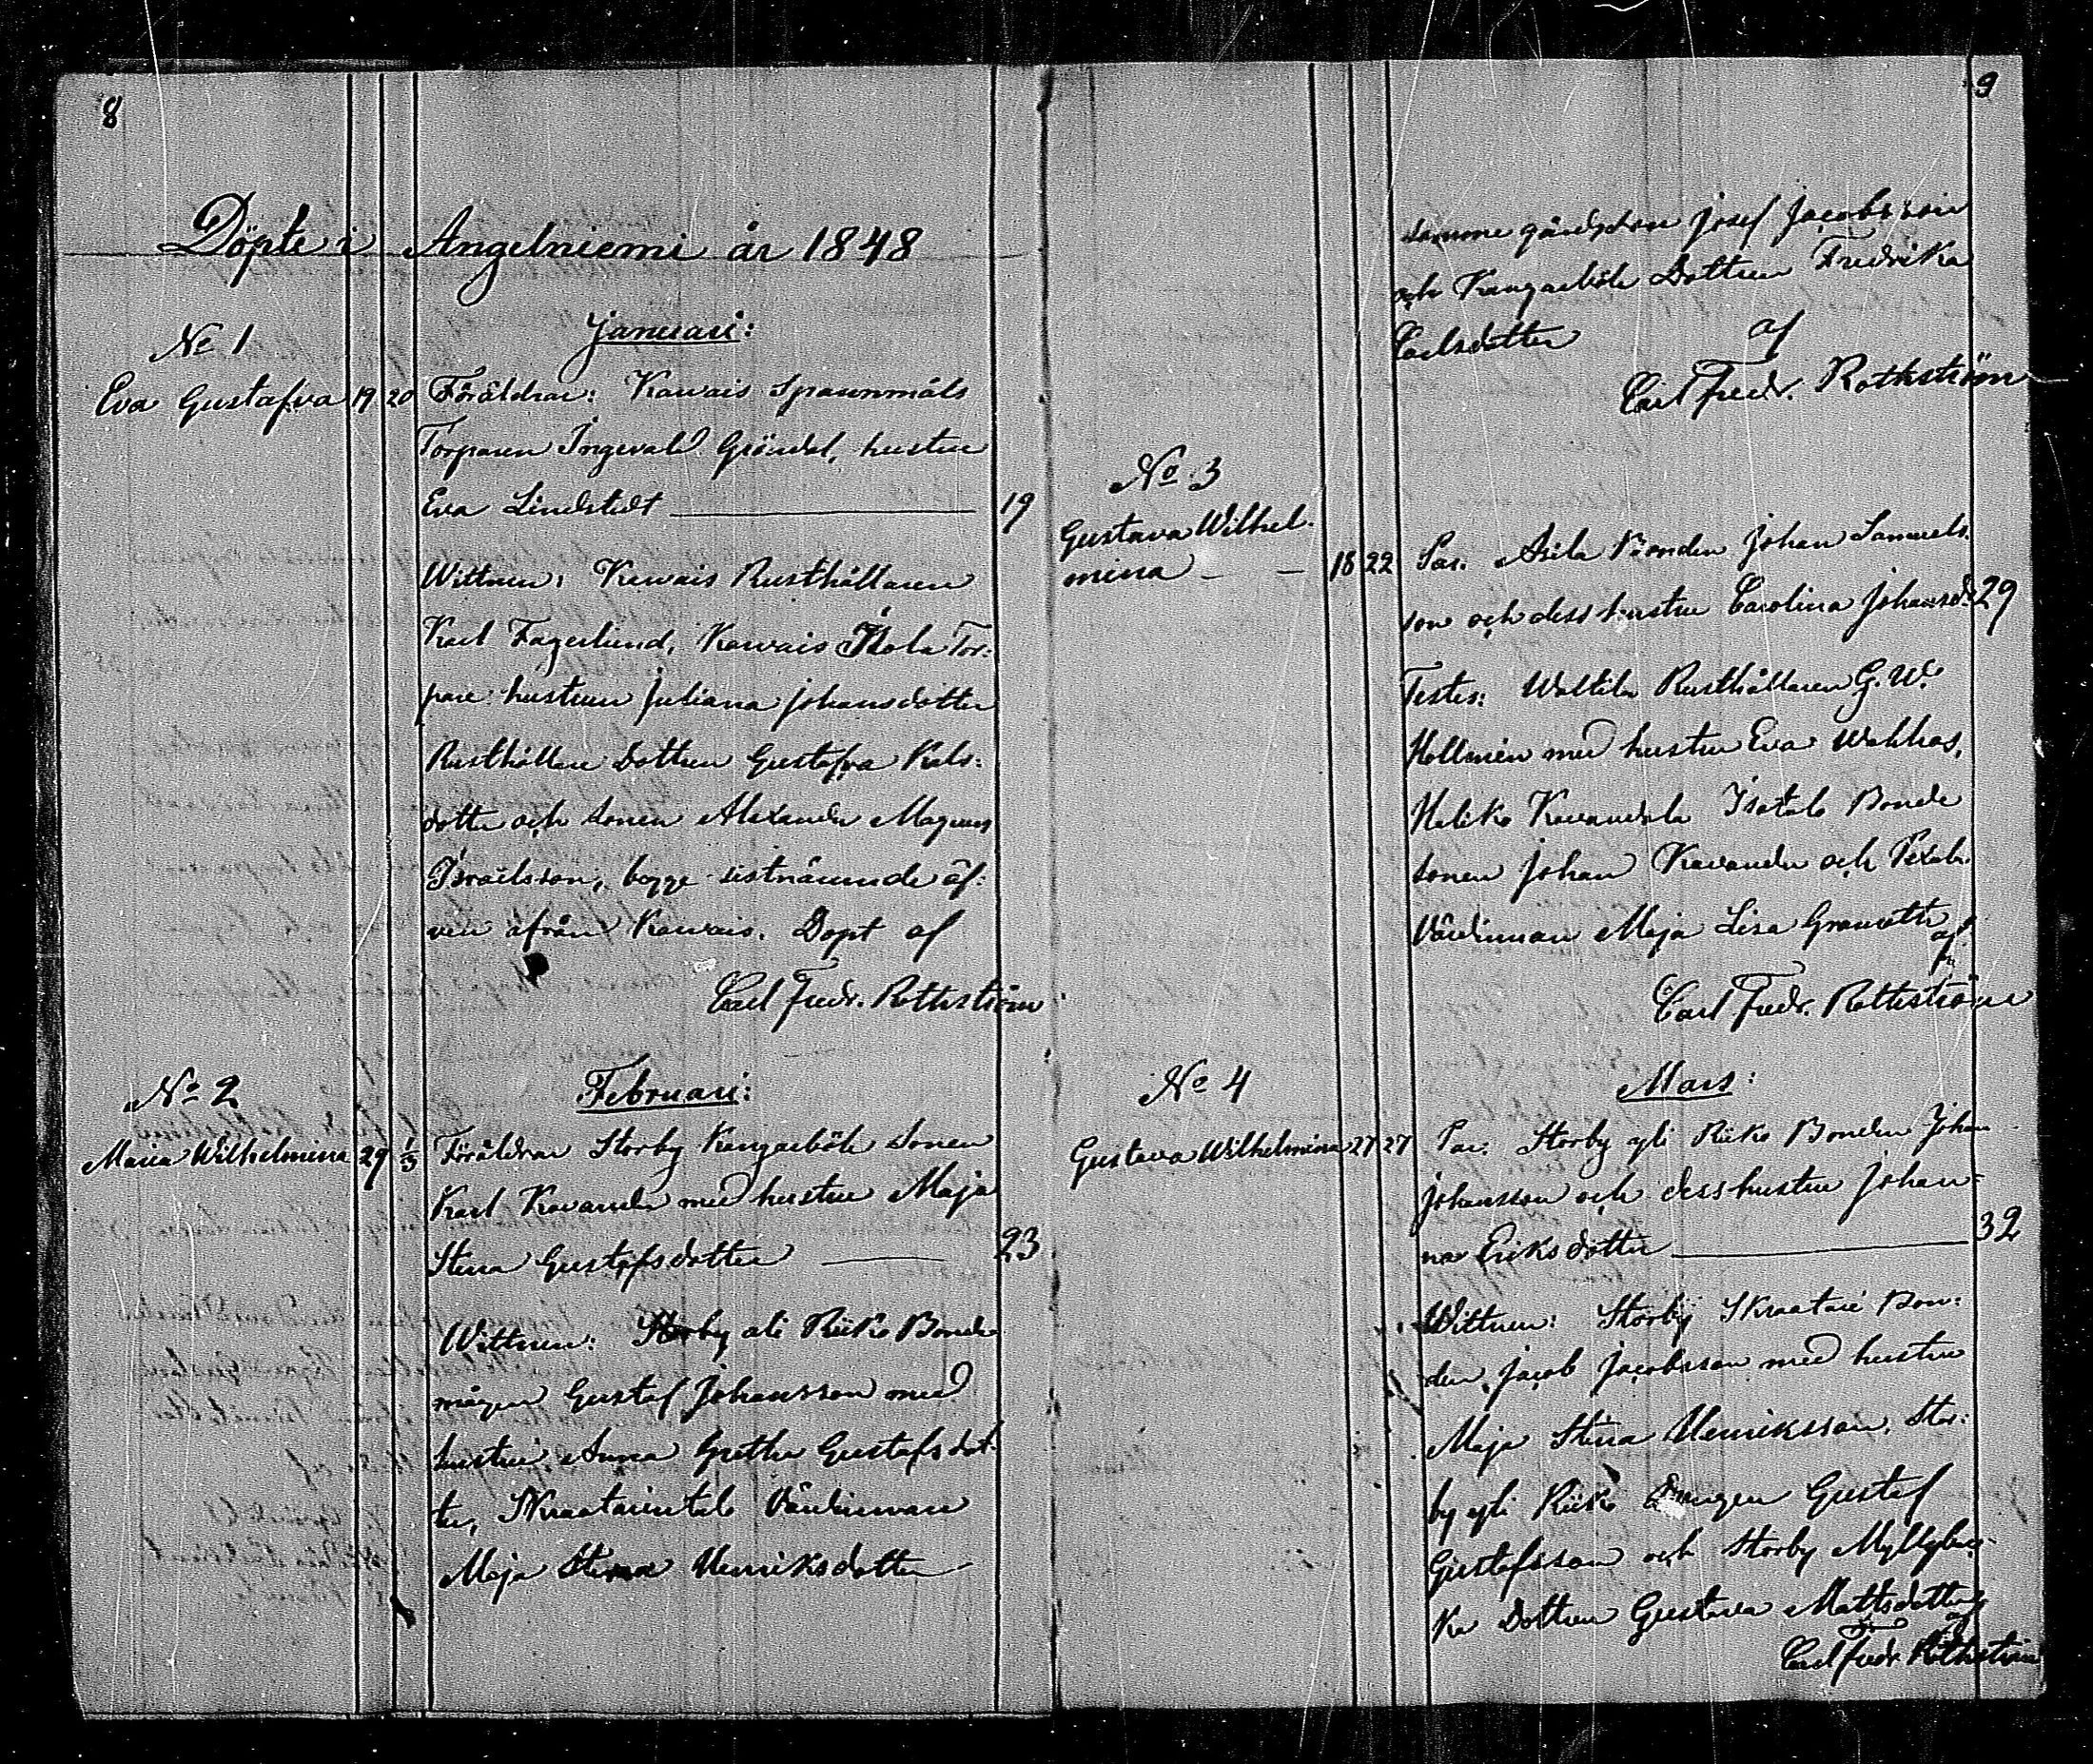 8
Döpte i Angelniemi år 1848
No 1
Januari:
Eva Gustafva 19 20 Föräldrar: Kawais Spannmåls
Torparen Ingevald Gröndal, hustru
Eva Lindstedt 19
Wittnen: Kawais Rusthållaren
Karl Fagerlund, Kawais Tor:
pare hustrun Juliana Johansdotter
Rusthållare Dottren Gustafva Kals:
dotter och Sonen Alexander Magnus
Israëlsson, begge sistnämnde äf:
ven ifrån Kawais. Döpt af
Carl Fredr. Rothström
No 2
Februari:
Maria Wilhelmina 29 1/3 Föräldrar Storby Kangarböle Sonen
Karl Kavander med hustru Maja
Stina Gustafsdotter 23
Wittnen: Storby ali Riiko Bonde
mågen Gustaf Johansson med
hustru Anna Gretha Gustafsdot:
ter, Skraatarintalo Värdinnan
Maja Stina Henriksdotter
9
samme gårds Son Josef Jacobsson
och Kangarböle Dottren Fredrika
Carlsdotter af
Carl Fredr. Rothström
No 3
Gustava Wilhel-
mina 18 22 Par. Asila Bonden Johan Samuels
son och dess hustru Carolina Johansd: 29
Testes: Waltila Rusthållaren G. W.
Hollmén med hustru Eva Wahlroos,
Haliko Kavandala Isotalo Bonde
sonen Johan Kavander och
Värdinnan Maja Lisa Granroth
af
Carl Fredr. Rothström
No 4
Mars:
Gustava Wilhelmina 27 27 Par: Storby yli Riiko Bonden Johan
Johansson och dess hustru Johan-
na Eriksdotter 32
Wittnen: Storby Skraatari Bon:
den Jacob Jacobsson med hustru
Maja Stina Henriksson, Stor:
by yli Riiko Drengen Gustaf
Gustafsson och Storby Myllyky-
Dottren Gustava Mattsdotter
af
Carl Fredr. Rothström